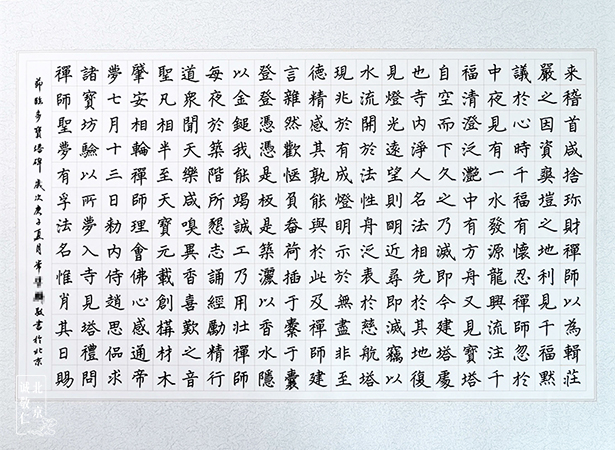 来稽首咸捨珎財禪師以為輯莊
嚴之因資爽塏之地利見千福默
議於心時千福有懷忍禪師忽於
中夜見有一水發源龍興流注千
福清澄泛灔中有方舟又見寶塔
自空而下久之乃滅即今建塔處
也寺内淨人名法相先於其地復
見燈光遠望則明近尋即滅竊以
水流開於法性舟泛表於慈航塔
現兆於有成燈明示於無盡非至
德精感其孰能與於此及禪師建
言雜然歡愜負畚荷插于橐于囊
登登憑憑是板是築灑以香水隱
以金鎚我能竭誠工乃用壯禪師
每夜於築階所懇志誦經勵精行
道衆聞天樂咸嗅異香喜歎之音
聖凡相半至天寶元載創構材木
肇安相輪禪師理會佛心感通帝
夢七月十三日勑内侍趙思侶求
諸寶坊驗以所夢入寺見塔禮問
禪師聖夢有孚法名惟肖其日賜
節臨多寶塔碑 歲次庚子夏月常 敬書於北京
北京
誠敬仁